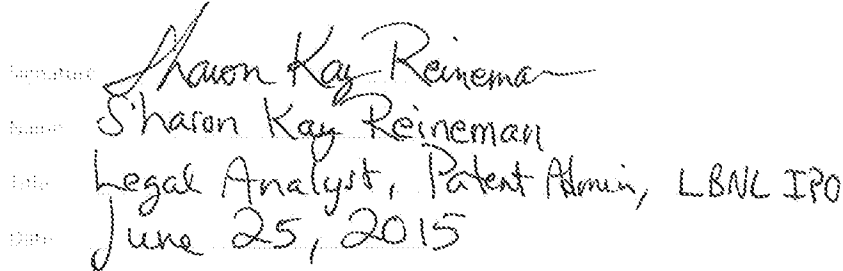 Signature Sharon Kay Reineman
Name Sharon Kay Reineman
Title Legal Analyst, Patent Admin, LBNL IPO
Date June 25, 2015